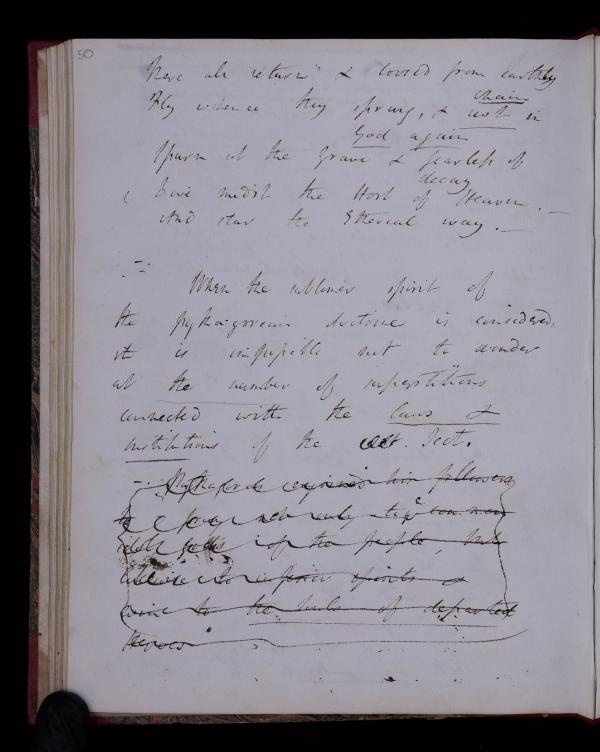 50
Here all return" & loosed from earthly
chain
Fly whence they sprung, & rest in
God again
Spurn at the Grave & fearless of
decay
Live midst the Host of Heaven. —
And star the Ethereal way. —
When the sublimer spirit of
the pythagorean doctrine is considered,
it is impossible not to wonder
at the number of superstitions
connected with the laws &
institutions of the Sect.
Pythagoras enjoined his followers
to pay not only to
idols gods of the people, but
likewise to inferior spirits &
even to the souls of departed
Heroes